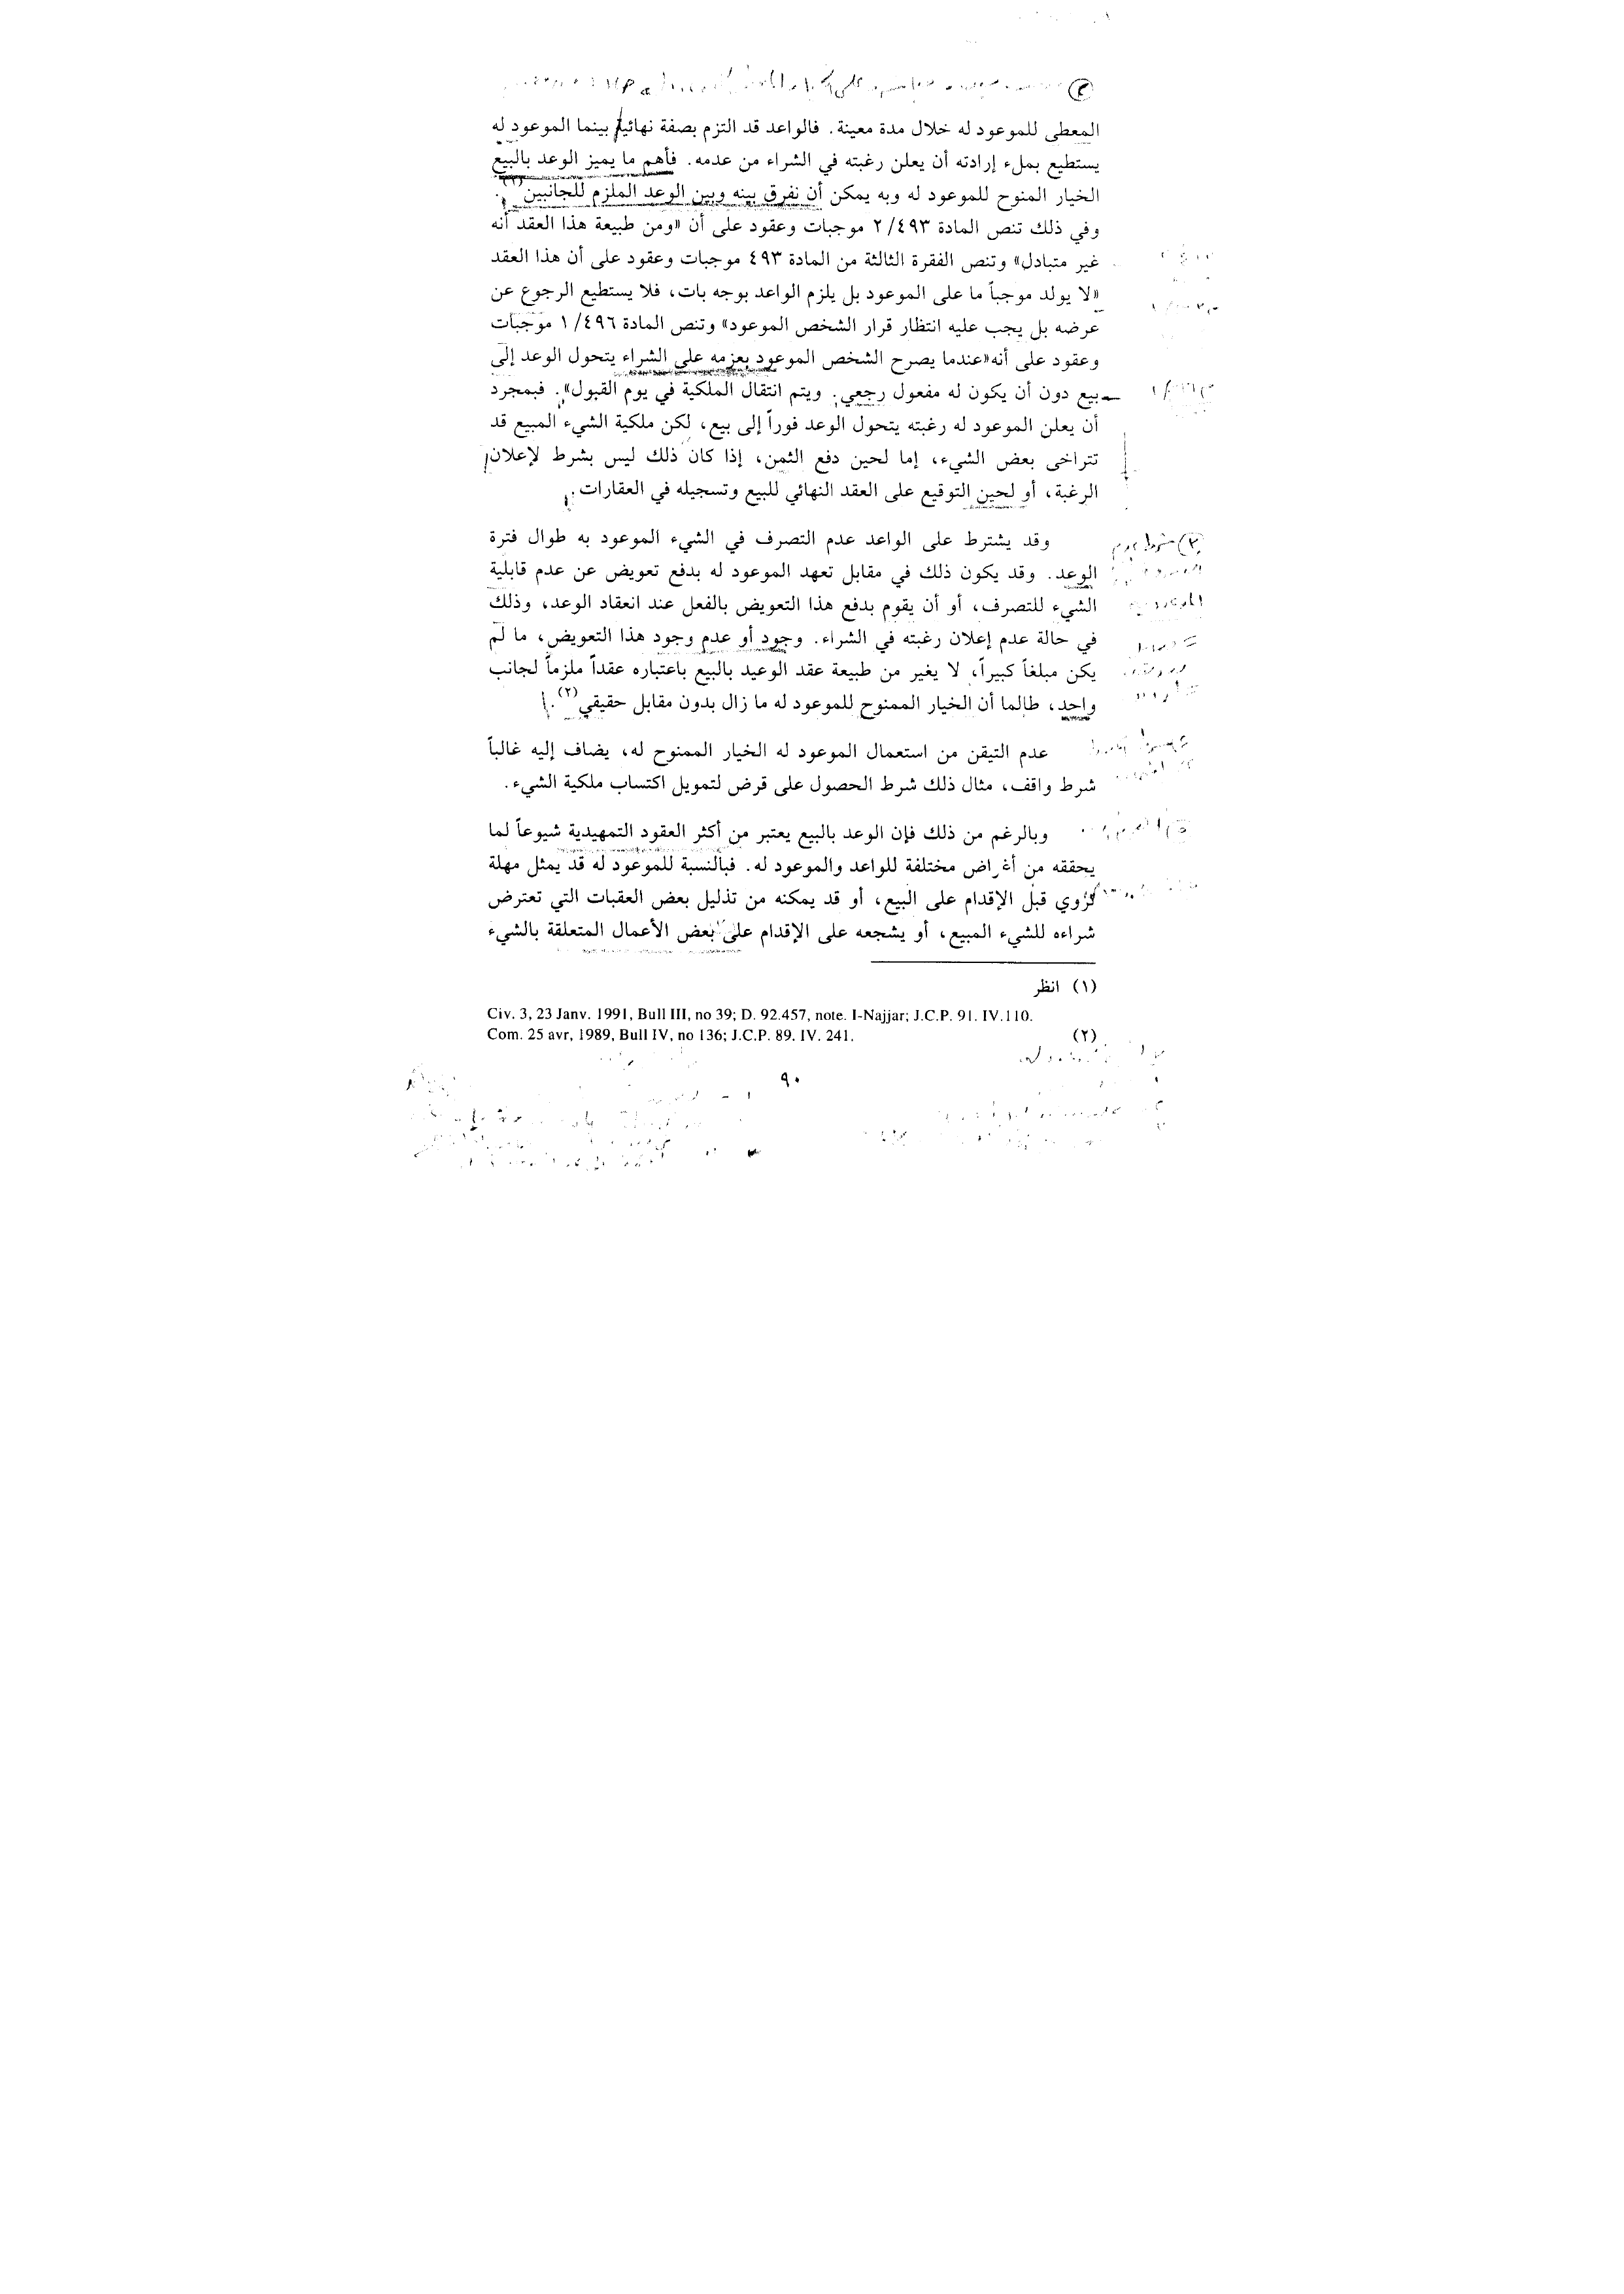 المعطى للموعود له خلال مدة معينة. فالواعد قد التزم بصفة نهائية بينما الموعود له
يستطيع بملء إرادته أن يعلن رغبته في الشراء من عدمه. فأهم ما يميز الوعد بالبيع
الخيار المنوح للموعود له وبه يمكن أن نفرق بينه وبين الوعد الملزم للجانبين(١).
وفي ذلك تنص المادة ٢/٤٩٣ موجبات وعقود على أن «ومن طبيعة هذا العقد أنه
غير متبادل» وتنص الفقرة الثالثة من المادة ٤٩٣ موجبات وعقود على أن هذا العقد
«لا يولد موجباً ما على الموعود بل يلزم الواعد بوجه بات، فلا يستطيع الرجوع عن
عرضه بل يجب عليه انتظار قرار الشخص الموعود» وتنص المادة ١/٤٩٦ موجبات
وعقود على أنه«عندما يصرح الشخص الموعود بعزمه على الشراء يتحول الوعد إلى
بيع دون أن يكون له مفعول رجعي. ويتم انتقال الملكية في يوم القبول». فبمجرد
أن يعلن الموعود له رغبته يتحول الوعد فوراً إلى بيع، لكن ملكية الشيء المبيع قد
تتراخى بعض الشيء، إما لحين دفع الثمن، إذا كان ذلك ليس بشرط لإعلان
الرغبة، أو لحين التوقيع على العقد النهائي للبيع وتسجيله في العقارات.
وقد يشترط على الواعد عدم التصرف في الشيء الموعود به طوال فترة
الوعد. وقد يكون ذلك في مقابل تعهد الموعود له بدفع تعويض عن عدم قابلية
الشيء للتصرف، أو أن يقوم بدفع هذا التعويض بالفعل عند انعقاد الوعد، وذلك
في حالة عدم إعلان رغبته في الشراء. وجود أو عدم وجود هذا التعويض، ما لم
يكن مبلغاً كبيراً، لا يغير من طبيعة عقد الوعيد بالبيع باعتباره عقداً ملزماً لجانب
واحد، طالما أن الخيار الممنوح للموعود له ما زال بدون مقابل حقيقي(٢).
عدم التيقن من استعمال الموعود له الخيار الممنوح له، يضاف إليه غالباً
شرط واقف، مثال ذلك شرط الحصول على قرض لتمويل اكتساب ملكية الشيء.
وبالرغم من ذلك فإن الوعد بالبيع يعتبر من أكثر العقود التمهيدية شيوعاً لما
يحققه من أغراض مختلفة للواعد والموعود له. فبالنسبة للموعود له قد يمثل مهلة
تروي قبل الإقدام على البيع، أو قد يمكنه من تذليل بعض العقبات التي تعترض
شراءه للشيء المبيع، أو يشجعه على الإقدام على بعض الأعمال المتعلقة بالشيء
(١) انظر
Civ. 3, 23 Janv. 1991, Bull III, no 39; D. 92.457, note. I-Najjar; J.C.P. 91. IV.110.
(٢) Com. 25 avr, 1989, Bull IV, no 136; J.C.P. 89. IV. 241.
٩٠